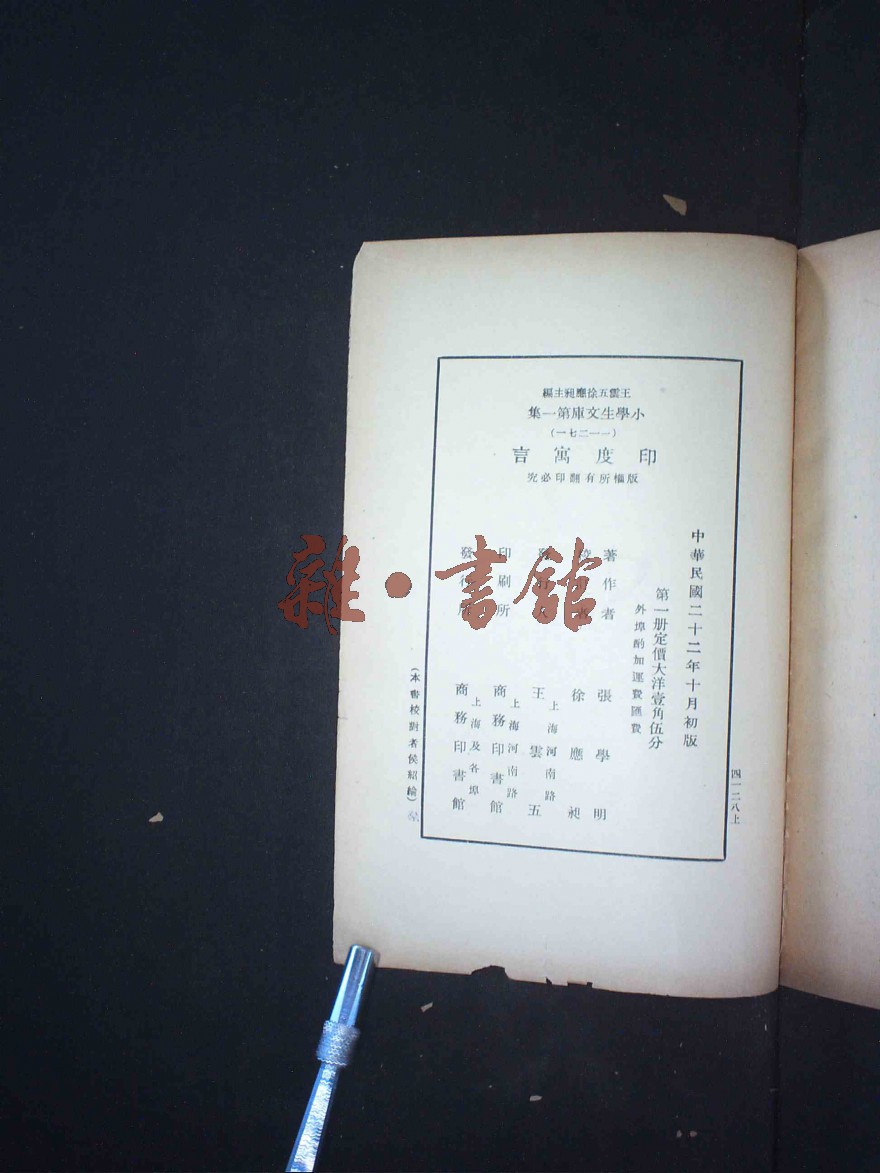 王雲五徐應昶主編
小學生文庫第一集
(一一二七一)
印度寓言
版權所有翻印必究
中華民國二十二年十月初版
第一册定價大洋壹角伍分
外埠酌加運費匯費
著作者 張學明
者 徐應昶
王雲五 上海河南路
印刷所 商務印書館 上海河南路
發行所 商務印書館 上海及各埠
(本書校對者侯紹綸)
四一二八上
雜·書館